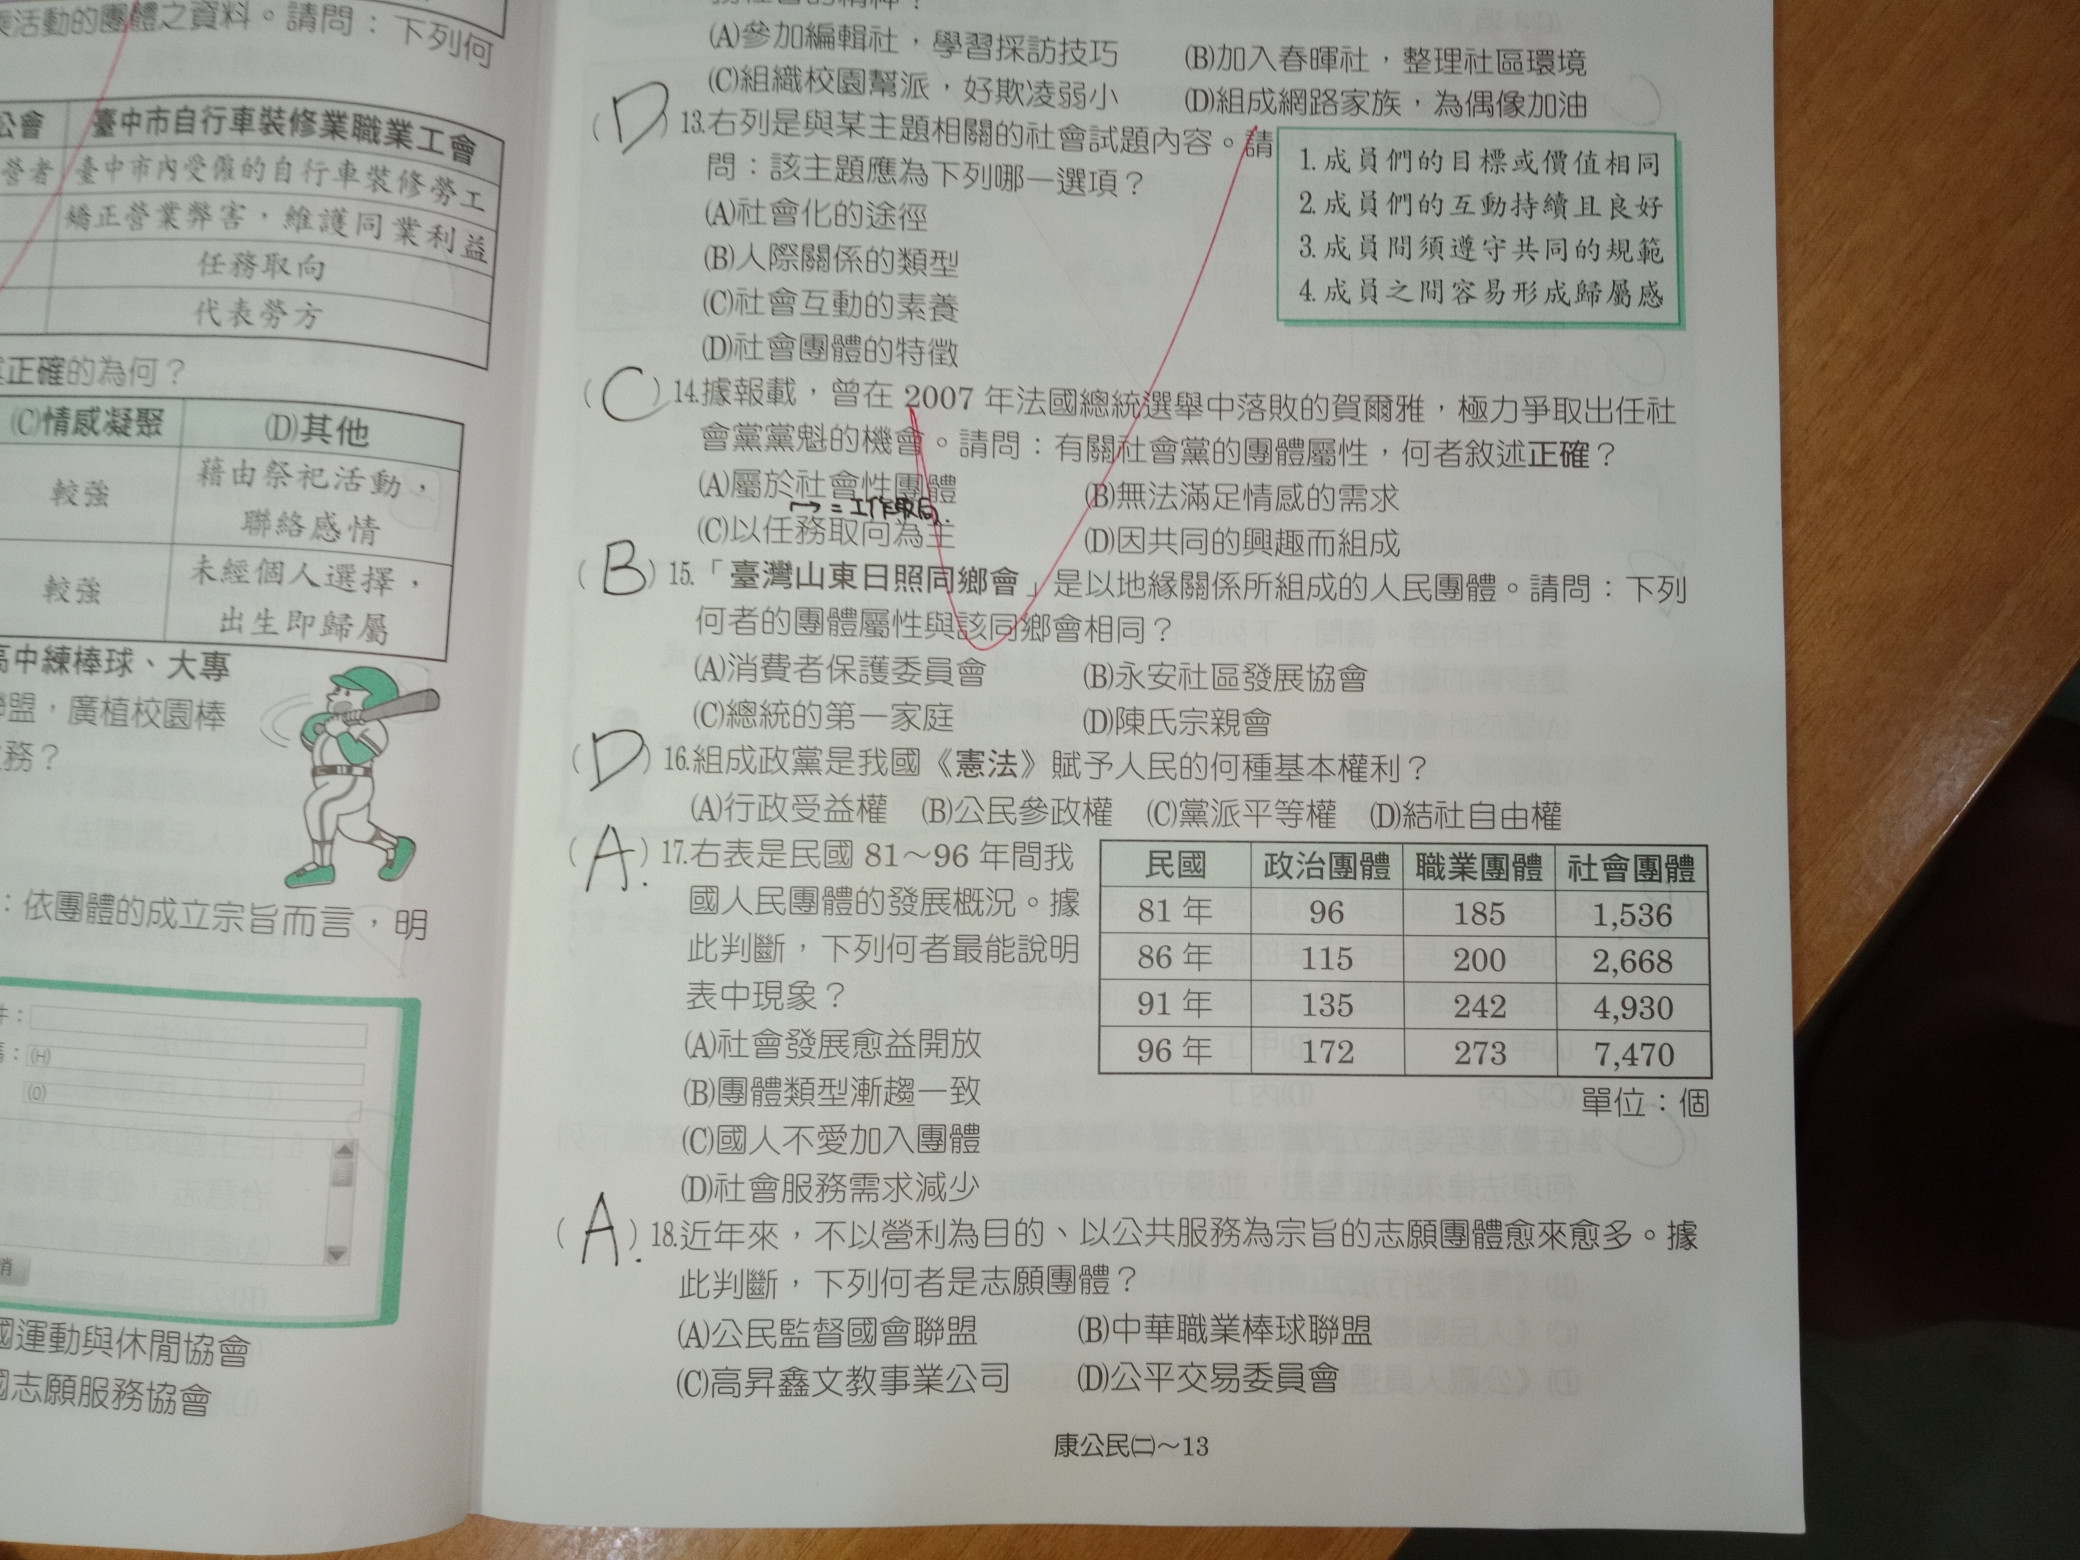 活動的團體之資料。請問：下列何
公會 臺中市自行車裝修業職業工會
營者 臺中市內受僱的自行車裝修勞工
矯正營業弊害，維護同業利益
任務取向
代表勞方
正確的為何？
(C)情感凝聚 (D)其他
較強 藉由祭祀活動，
聯絡感情
較強 未經個人選擇，
出生即歸屬
高中練棒球、大專
聯盟，廣植校園棒
務？
：依團體的成立宗旨而言，明
(H)
(O)
國運動與休閒協會
國志願服務協會
(A)參加編輯社，學習採訪技巧 (B)加入春暉社，整理社區環境
(C)組織校園幫派，好欺凌弱小 (D)組成網路家族，為偶像加油
(D)13.右列是與某主題相關的社會試題內容。請
問：該主題應為下列哪一選項？
(A)社會化的途徑
(B)人際關係的類型
(C)社會互動的素養
(D)社會團體的特徵
1.成員們的目標或價值相同
2.成員們的互動持續且良好
3.成員間須遵守共同的規範
4.成員之間容易形成歸屬感
(C)14.據報載，曾在 2007 年法國總統選舉中落敗的賀爾雅，極力爭取出任社
會黨黨魁的機會。請問：有關社會黨的團體屬性，何者敘述正確？
(A)屬於社會性團體 (B)無法滿足情感的需求
→ = 工作取向.
(C)以任務取向為主 (D)因共同的興趣而組成
(B)15.「臺灣山東日照同鄉會」是以地緣關係所組成的人民團體。請問：下列
何者的團體屬性與該同鄉會相同？
(A)消費者保護委員會 (B)永安社區發展協會
(C)總統的第一家庭 (D)陳氏宗親會
(D)16.組成政黨是我國《憲法》賦予人民的何種基本權利？
(A)行政受益權 (B)公民參政權 (C)黨派平等權 (D)結社自由權
(A.)17.右表是民國 81～96 年間我
國人民團體的發展概況。據
此判斷，下列何者最能說明
表中現象？
(A)社會發展愈益開放
(B)團體類型漸趨一致
(C)國人不愛加入團體
(D)社會服務需求減少
民國 政治團體 職業團體 社會團體
81 年 96 185 1,536
86 年 115 200 2,668
91 年 135 242 4,930
96 年 172 273 7,470
單位：個
(A.)18.近年來，不以營利為目的、以公共服務為宗旨的志願團體愈來愈多。據
此判斷，下列何者是志願團體？
(A)公民監督國會聯盟 (B)中華職業棒球聯盟
(C)高昇鑫文教事業公司 (D)公平交易委員會
康公民㈡～13